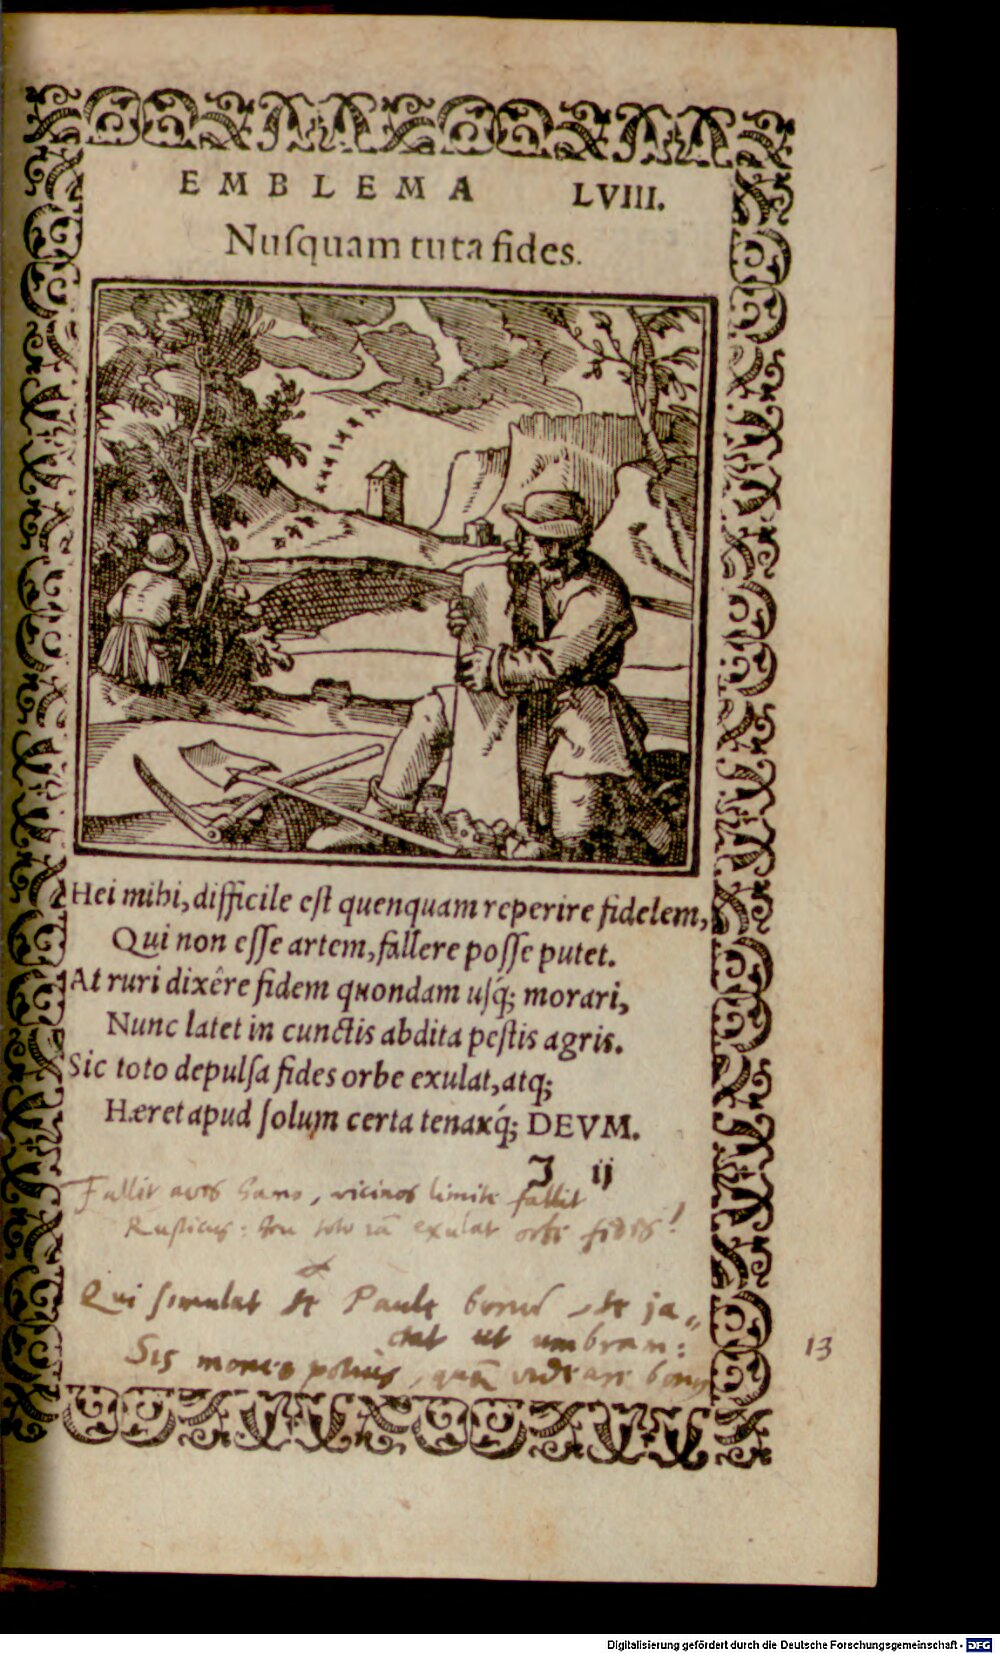 EMBLEMA LVIII.
Nuſquam tuta fides.
Hei mihi, difficile eſt quenquam reperire fidelem,
Qui non eſſe artem, fallere poſſe putet.
At ruri dixêre fidem quondam uſq́; morari,
Nunc latet in cunctis abdita peſtis agris.
Sic toto depulſa fides orbe exulat, atq;
Hæret apud ſolum certa tenaxq́; DEVM.
I ij
Fallit aves hamo, vicinos limite fallit
Ruſticus: heu toto iã exulat orbe fides!
Qui ſimulat ſe Paule bonum, ſe ja„
ctat ut umbram:
Sis moneo potius, quã videare bonus
13
Digitalisierung gefördert durch die Deutsche Forschungsgemeinschaft - DFG